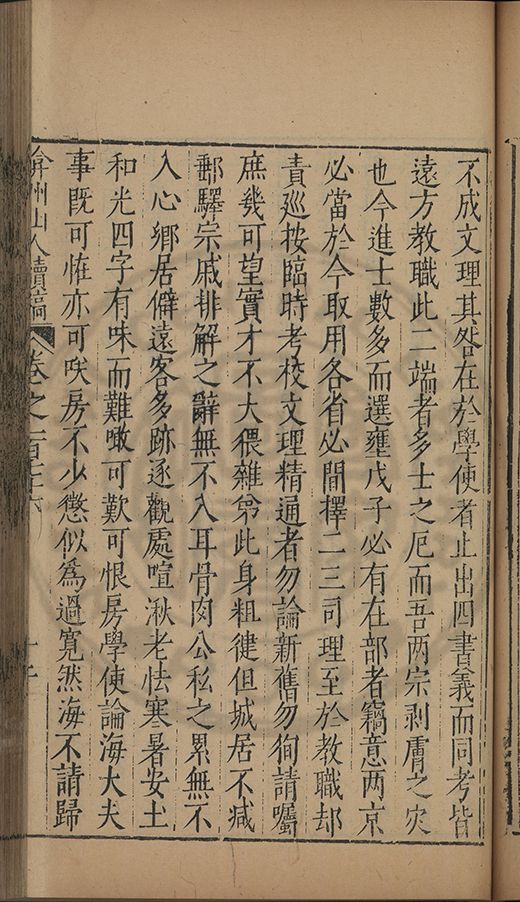 不成文理其咎在於學使者止出四書義而同考皆
遠方教職此二端者多士之厄而吾两宗剥膚之灾
也今進士數多而選壅戊子必有在部者竊意两京
必當於今取用各省必間擇二三司理至於教職却
責巡按臨時考校文理精通者勿論新舊勿狥請囑
庶幾可望實才不大猥雜弟此身粗健但城居不減
郵驛宗戚排解之辭無不入耳骨肉公私之累無不
入心鄉居僻遠客多跡逐觀處喧湫老怯寒暑安土
和光四字有味而難噉可歎可恨房學使論海大夫
事既可恠亦可唉房不少懲似為過寛然海不請歸
弇州山人續稿 卷之一百